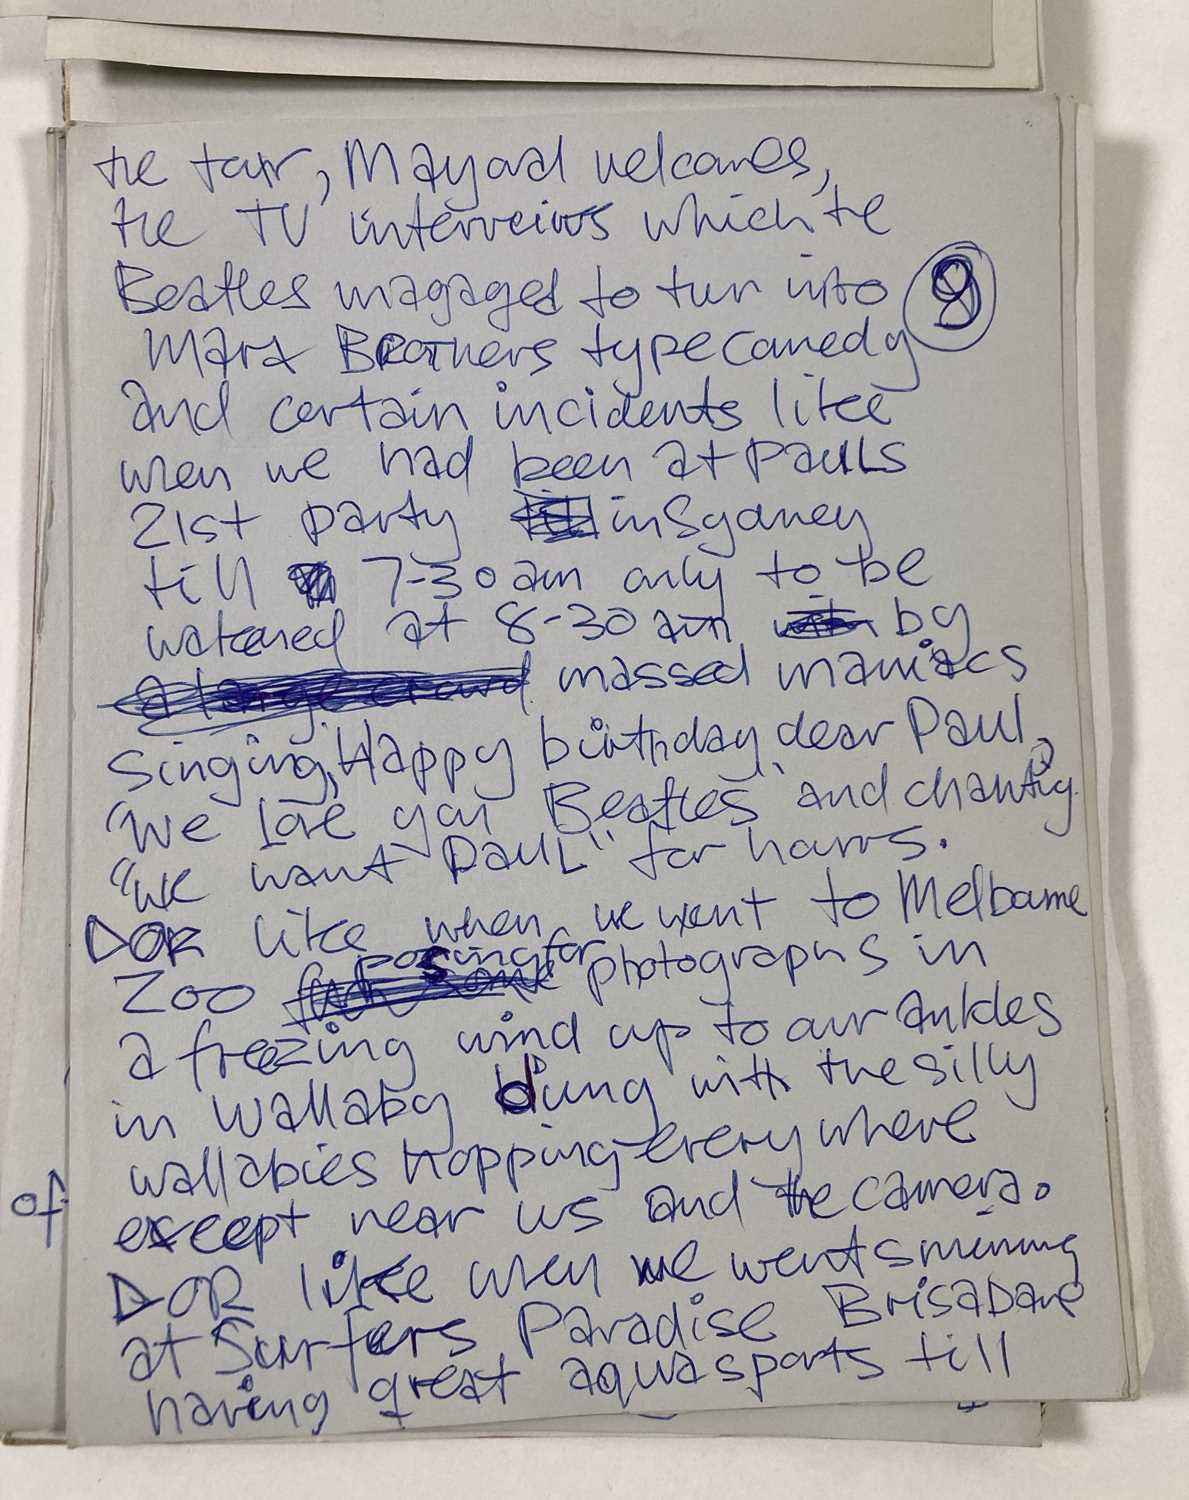 the tour, Mayoral welcomes,
the TV interveiws which the
Beatles magaged to turn into
9
Marx Brothers type comedy
and certain incidents like
when we had been at Pauls
21st party till in Sydney
till 7-30 am only to be
watened at 8-30 am with by
a large crowd massed maniacs
singing, Happy birthday dear Paul,
"We love you Beatles" and chanting
"We want PAUL" for hours.
OR like when we went to Melbourne
posing for
Zoo photographs in
a freezing wind up to our ankles
in wallaby dung with the silly
wallabies hopping everywhere
except near us and the camera.
of
OR like when we went swimming
at Surfers Paradise Brisabane
having great aquasports till